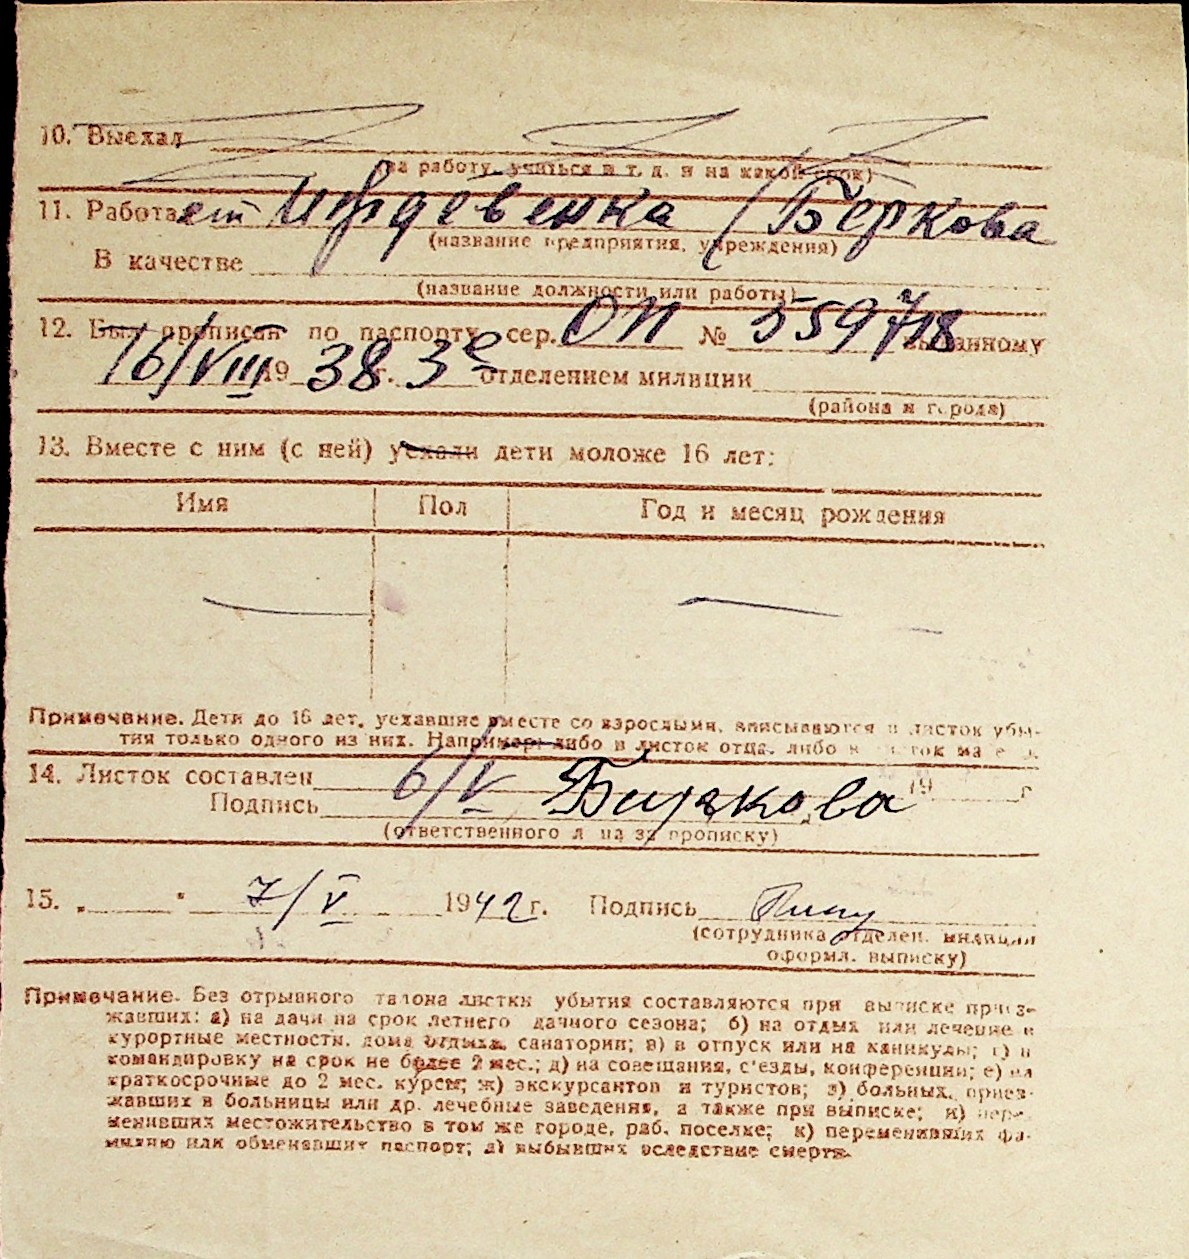 10. Выехал
(на работу, учиться и т. д. и на какой срок)
11. Работает Иждевенка / Беркова
(название предприятия, учреждения)
В качестве
(название должности или работы)
12. Был прописан по паспорту сер. ОП № 559718 выданному
16/VIII 1938 г. 3е отделением милиции
(района и города)
13. Вместе с ним (с ней) уехали дети моложе 16 лет:
Имя Пол Год и месяц рождения
Примечание. Дети до 16 лет, уехавшие вместе со взрослыми, вписываются в листок убы-
тия только одного из них. Например: либо в листок отца, либо в листок матери.
14. Листок составлен 6/V 19 г
Подпись
(ответственного лица за прописку)
15. „ “ 7/V 1942 г. Подпись
(сотрудника отделен. милиции
оформл. выписку)
Примечание. Без отрывного талона листки убытия составляются при выписке приез-
жавших: а) на дачи на срок летнего дачного сезона; б) на отдых или лечение в
курортные местности, дома отдыха, санатории; в) в отпуск или на каникулы; г) в
командировку на срок не более 2 мес.; д) на совещания, с'езды, конференции; е) на
краткосрочные до 2 мес. курсы; ж) экскурсантов и туристов; з) больных, приез-
жавших в больницы или др. лечебные заведения, а также при выписке; и) пере-
менивших местожительство в том же городе, раб. поселке; к) переменивших фа-
милию или обменявших паспорт; л) выбывших вследствие смерти.